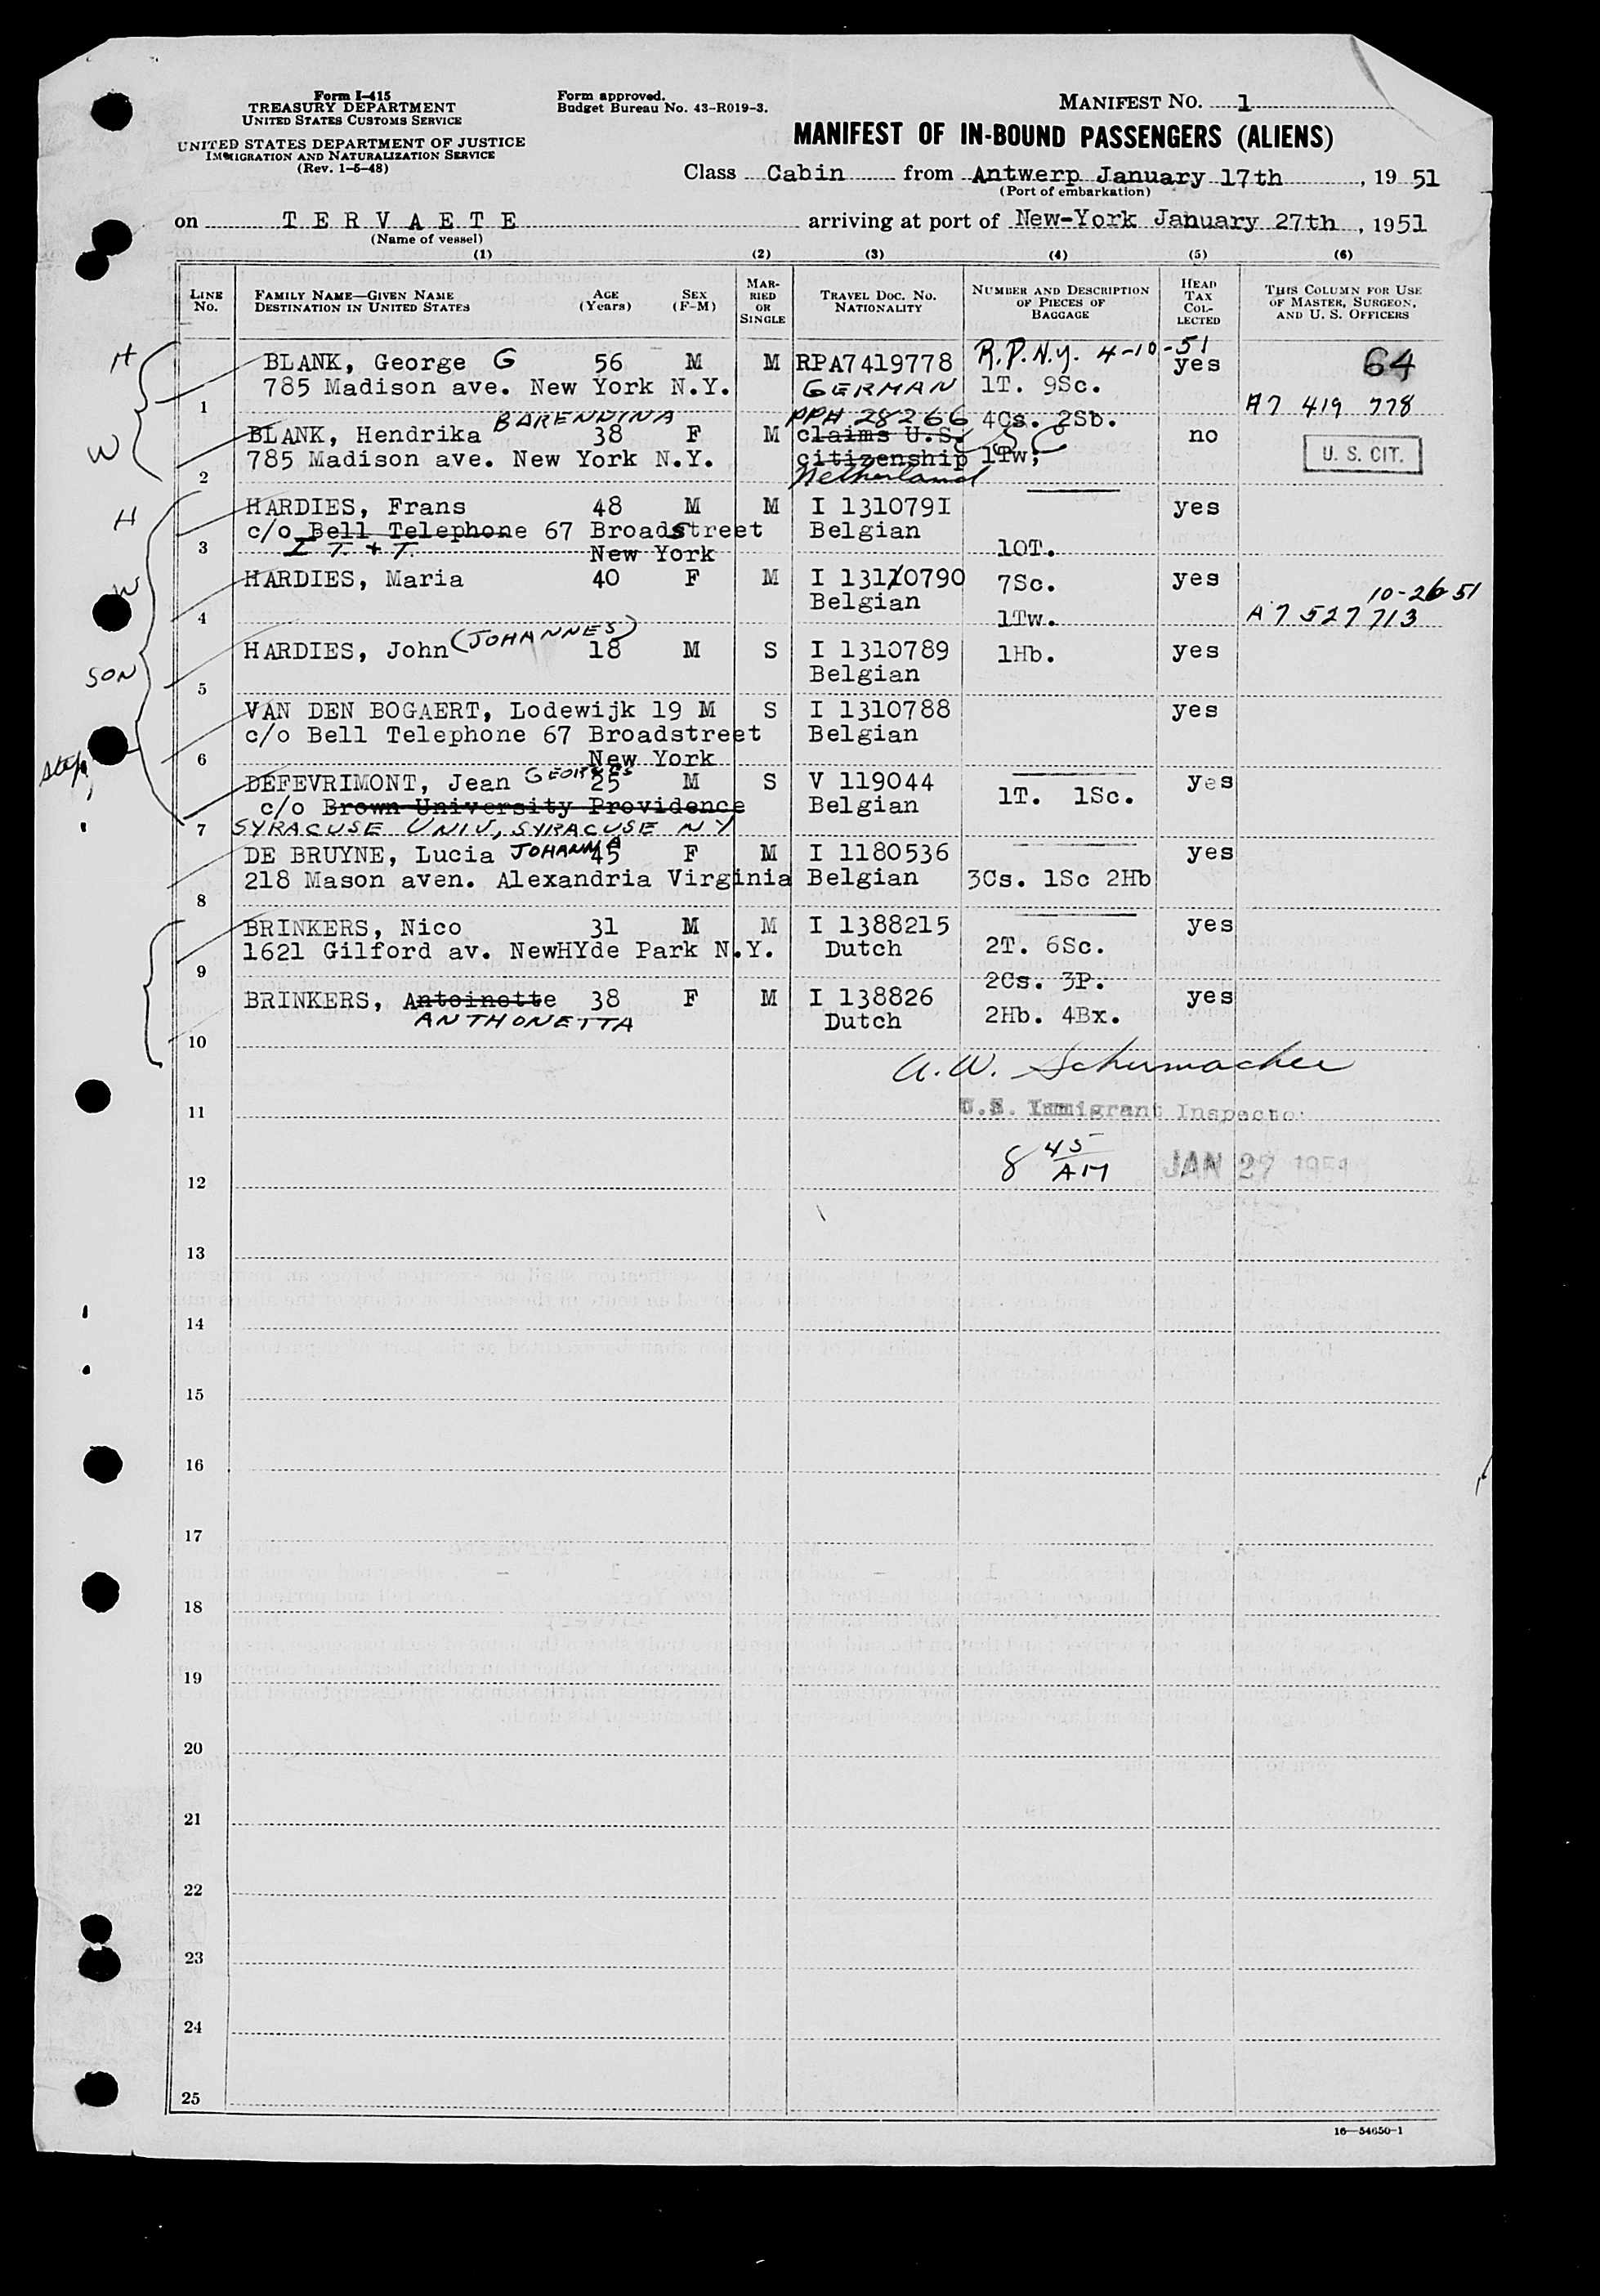 Form I-415
TREASURY DEPARTMENT
UNITED STATES CUSTOMS SERVICE
UNITED STATES DEPARTMENT OF JUSTICE
IMMIGRATION AND NATURALIZATION SERVICE
(Rev. 1-5-48)
Form approved.
Budget Bureau No. 43-R019-3.
MANIFEST NO. 1
MANIFEST OF IN-BOUND PASSENGERS (ALIENS)
Class Cabin from Antwerp January 17th, 1951
(Port of embarkation)
on TERVAETE arriving at port of New-York January 27th, 1951
(Name of vessel)
(1) (2) (3) (4) (5) (6)
LINE No. FAMILY NAME—GIVEN NAME DESTINATION IN UNITED STATES AGE (Years) SEX (F-M) MARRIED OR SINGLE TRAVEL DOC. NO. NATIONALITY NUMBER AND DESCRIPTION OF PIECES OF BAGGAGE HEAD TAX COLLECTED THIS COLUMN FOR USE OF MASTER, SURGEON, AND U. S. OFFICERS
R.P.N.Y. 4-10-51
H BLANK, George G 56 M M RPA7419778 yes 64
785 Madison ave. New York N.Y. GERMAN 1T. 9Sc.
1 A7 419 778
BARENDINA PPH 28266 4Cs. 2Sb.
W BLANK, Hendrika 38 F M claims U.S. no U. S. CIT.
785 Madison ave. New York N.Y. citizenship 1Tw;
2 Netherland
H HARDIES, Frans 48 M M I 1310791 yes
c/o Bell Telephone 67 Broadstreet Belgian
3 I T. + T. New York 10T.
W HARDIES, Maria 40 F M I 13110790 7Sc. yes
Belgian 10-26-51
4 1Tw. A7 527 713
HARDIES, John (JOHANNES) 18 M S I 1310789 1Hb. yes
SON Belgian
5
VAN DEN BOGAERT, Lodewijk 19 M S I 1310788 yes
c/o Bell Telephone 67 Broadstreet Belgian
6 New York
Step
DEFEVRIMONT, Jean GEORGES 25 M S V 119044 yes
c/o Brown University Providence Belgian 1T. 1Sc.
7 SYRACUSE UNIV, SYRACUSE NY
DE BRUYNE, Lucia JOHANNA 45 F M I 1180536 yes
218 Mason aven. Alexandria Virginia Belgian 3Cs. 1Sc 2Hb
8
BRINKERS, Nico 31 M M I 1388215 yes
1621 Gilford av. NewHYde Park N.Y. Dutch 2T. 6Sc.
9 2Cs. 3P.
BRINKERS, Antoinette 38 F M I 138826 yes
ANTHONETTA Dutch 2Hb. 4Bx.
10
A. W. Schumacher
11 U.S. Immigrant Inspector
8 45 AM JAN 27 1951
12
13
14
15
16
17
18
19
20
21
22
23
24
25
16—54650-1